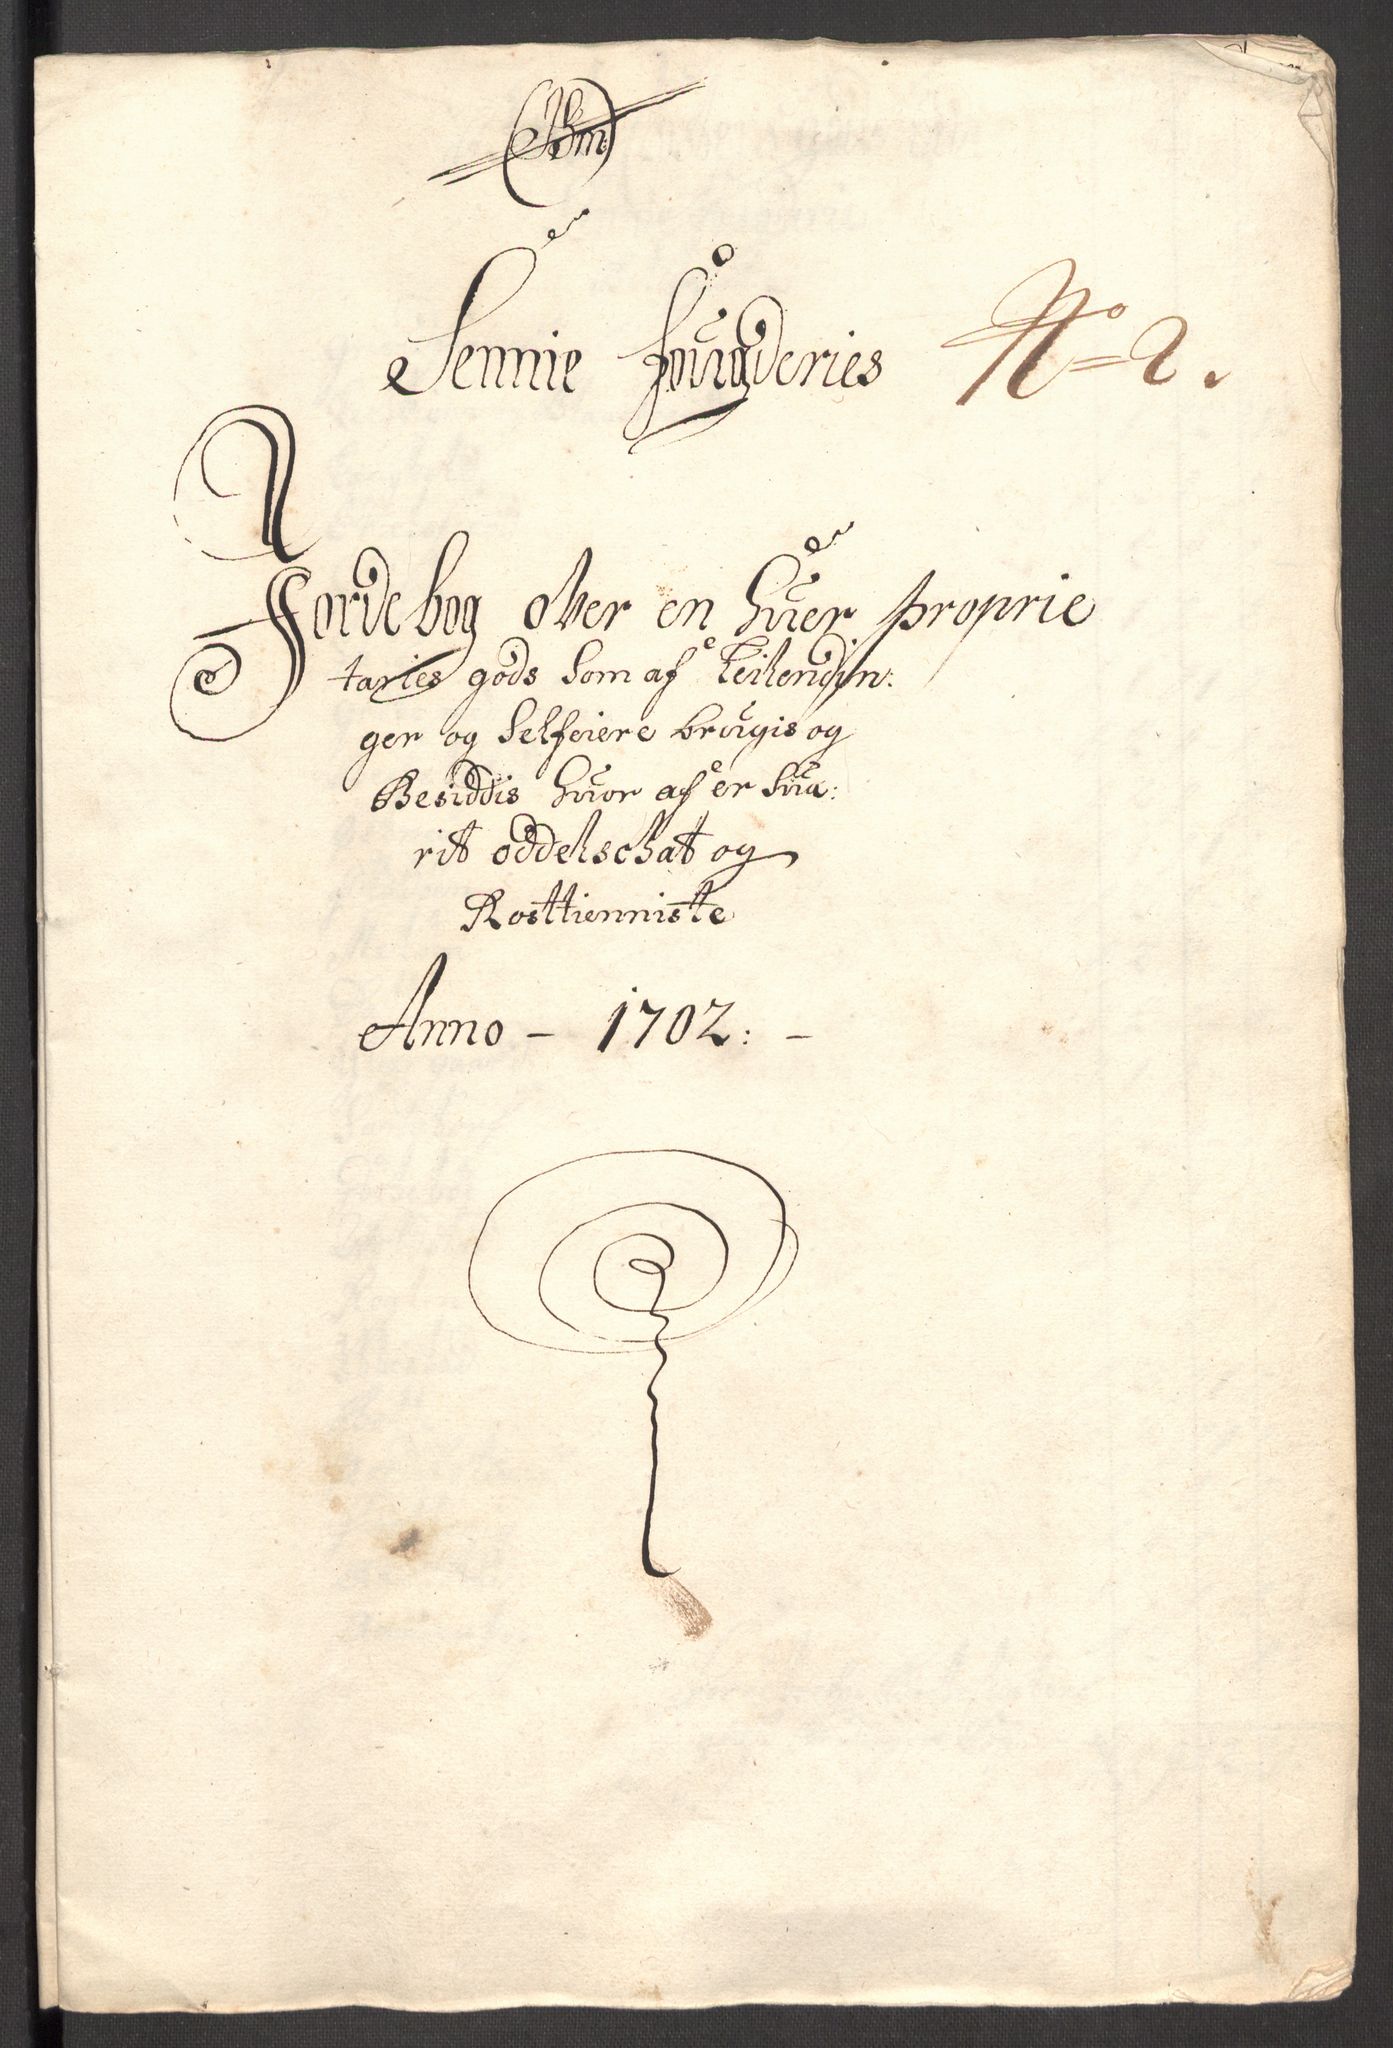 Sennie fougderies No 2.
Jordebog over en huer proprie
taries gods som af Leilendin:
ger og Selfeiere brugis og
Besiddis huor af er sua:
rit oddelschat og
Rosttienniste
Anno - 1702: -